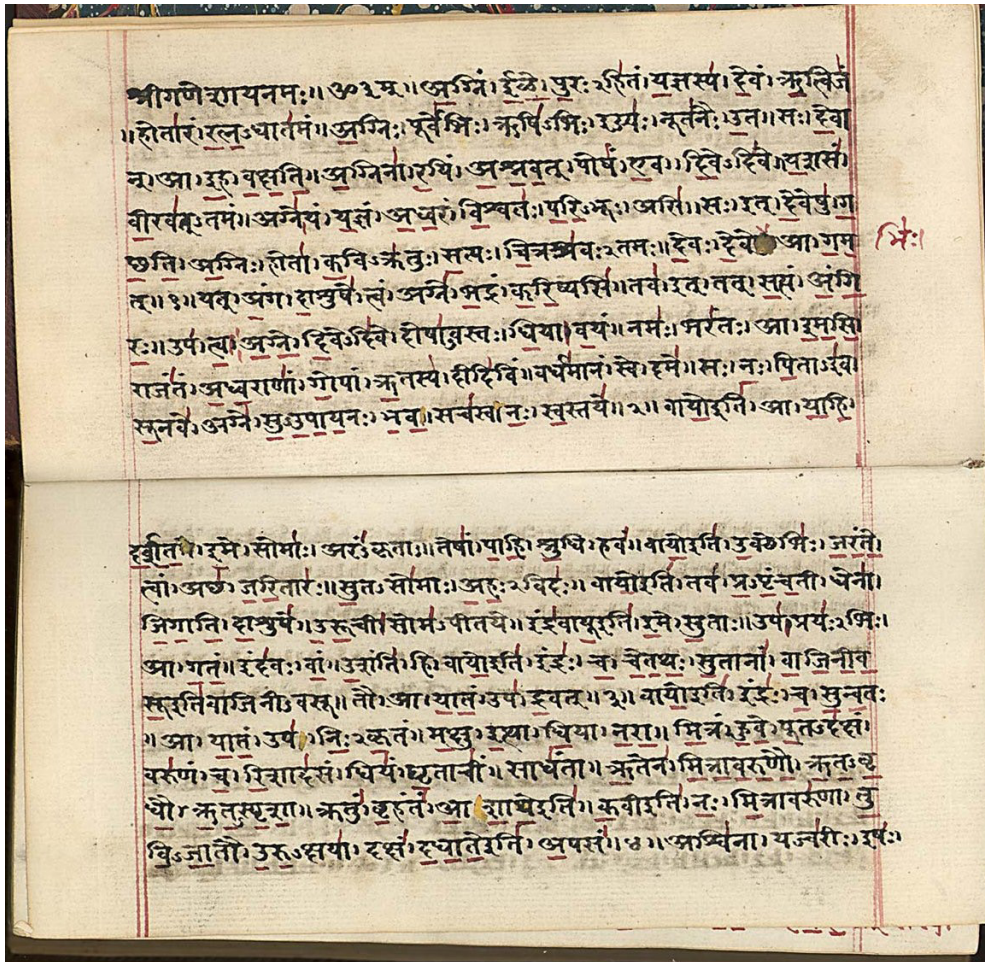 श्रीगणेशायनमः॥ॐ३म्॥अ॒ग्निं। ई॒ळे॒। पु॒रःऽहि॑तं। य॒ज्ञस्य॑। दे॒वं। ऋ॒त्विजं॑
॥होता॑रं। र॒त्न॒ऽधात॑मं॥ अ॒ग्निः। पूर्वे॑भिः। ऋषि॑ऽभिः। ईड्यः॑। नूत॑नैः। उ॒त॥ सः। दे॒वा
न्। आ। इ॒ह। व॒क्ष॒ति॒॥ अ॒ग्निना॑। र॒यिं। अ॒श्न॒व॒त्। पोषं॑। ए॒व। दि॒वेऽदि॑वे॥ य॒शसं॑
वी॒रव॑त्ऽतमं॥ अग्ने॑। यं। य॒ज्ञं। अ॒ध्व॒रं। वि॒श्वतः॑। प॒रि॒ऽभूः। असि॑॥ सः। इत्। दे॒वेषु॑। ग॒
च्छ॒ति॒। अ॒ग्निः। होता॑। क॒विऽक्र॑तुः। स॒त्यः। चि॒त्रश्र॑वःऽतमः॥ दे॒वः। दे॒वे आ। ग॒म॒
भिः॑।
त्॥१॥ यत्। अं॒ग। दा॒शुषे॑। त्वं। अग्ने॑। भ॒द्रं। क॒रि॒ष्यसि॑॥ तव॑। इत्। तत्। स॒त्यं। अं॒गि॒
रः॒॥ उप॑। त्वा॒। अ॒ग्ने॒। दि॒वेऽदि॑वे। दोषा॑ऽवस्तः। धि॒या। व॒यं॥ नमः॑। भरं॑तः। आ। इ॒म॒सि॒
राजं॑तं। अ॒ध्व॒राणां॑। गो॒पां। ऋ॒तस्य॑। दीदि॑विं॥ वर्ध॑मानं। स्वे। दमे॑॥ सः। नः॒। पि॒ताऽइ॑व।
सू॒नवे॑। अग्ने॑। सु॒ऽउ॒पा॒य॒नः। भ॒व॒॥ सच॑स्व। नः॒। स्व॒स्तये॑॥२॥ वायो॒इति॑। आ। या॒हि॒
द॒र्श॒त॒। इ॒मे। सोमाः॑। अरं॑ऽकृताः॥ तेषां॑। पा॒हि॒। श्रु॒धि। हवं॑॥ वायो॒इति॑। उ॒क्थेभिः॑। ज॒रं॒ते॒
त्वां। अच्छ॑। ज॒रि॒तारः॑॥ सु॒तऽसो॑माः। अ॒हः॒ऽविदः॑॥ वायो॒इति॑। तव॑। प्र॒ऽपृं॒च॒ती। धेना॑।
जि॒गा॒ति॒। दा॒शुषे॑॥ उ॒रू॒ची। सोम॑ऽपीतये॥ इंद्र॑वायू॒इति॑। इ॒मे। सु॒ताः॥ उप॑। प्रयः॑ऽभिः।
आ। ग॒तं॒॥ इंद॑वः। वां॒। उ॒शंति॑। हि॥ वायो॒इति॑। इंद्रः॑। च॒। चे॒त॒थः॒। सु॒तानां॑। वा॒जि॒नी॒व॒
सू॒इति॑वाजिनीऽवसू॥ तौ। आ। या॒तं॒। उप॑। द्र॒वत्॥३॥ वायो॒इति॑। इंद्रः॑। च॒। सु॒न्व॒तः
॥ आ। या॒तं॒। उप॑। निः॒ऽकृ॒तं॥ म॒क्षु। इ॒त्था। धि॒या। न॒रा॒॥ मि॒त्रं। हु॒वे॒। पू॒तऽद॑क्षं।
वरु॑णं। च॒। रि॒शाद॑सं॥ धियं॑। घृ॒ताचीं॑। साधं॑ता॥ ऋ॒तेन॑। मि॒त्रा॒व॒रु॒णौ॒। ऋ॒त॒ऽवृ॒
धौ॒। ऋ॒त॒ऽस्पृ॒शा॒॥ क्रतुं॑। बृ॒हंतं॑। आ॒शा॒थे॒इति॑॥ क॒वीइति॑। नः॒। मि॒त्रावरु॑णा। तु॒
वि॒ऽजा॒तौ। उ॒रु॒ऽक्षया॑॥ दक्षं॑। द॒धा॒ते॒इति॑। अ॒पसं॑॥४॥ अश्वि॑ना। यज्व॑रीः। इषः॑।